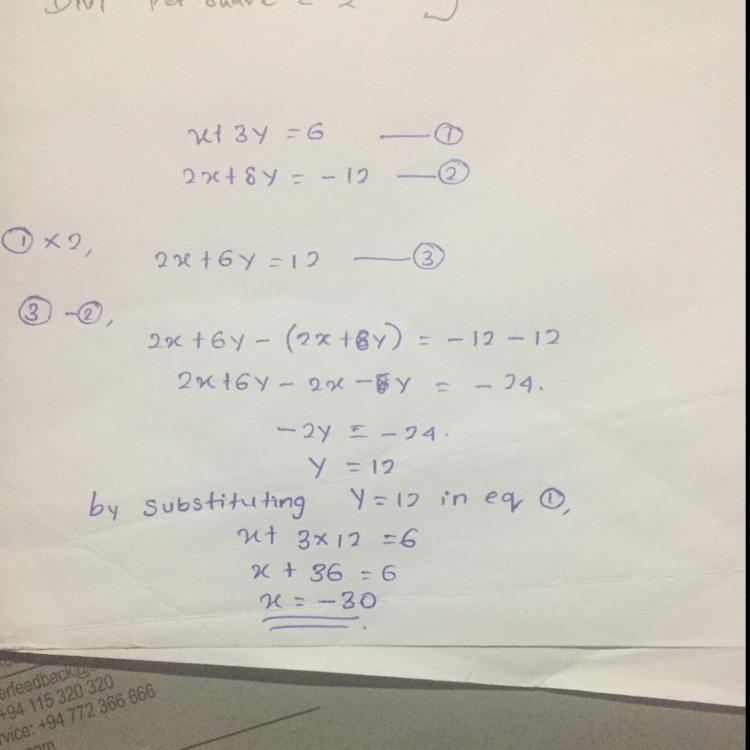 x+3y = 6 —— ①
2x+8y = -12 —— ②
① × 2,
2x+6y = 12 —— ③
③ - ②,
2x+6y - (2x+8y) = -12 - 12
2x+6y - 2x - 8y = -24.
-2y = -24.
y = 12
by substituting y = 12 in eq ①,
x+ 3×12 = 6
x + 36 = 6
x = -30.
erfeedback@
+94 115 320 320
rvice: +94 772 366 666